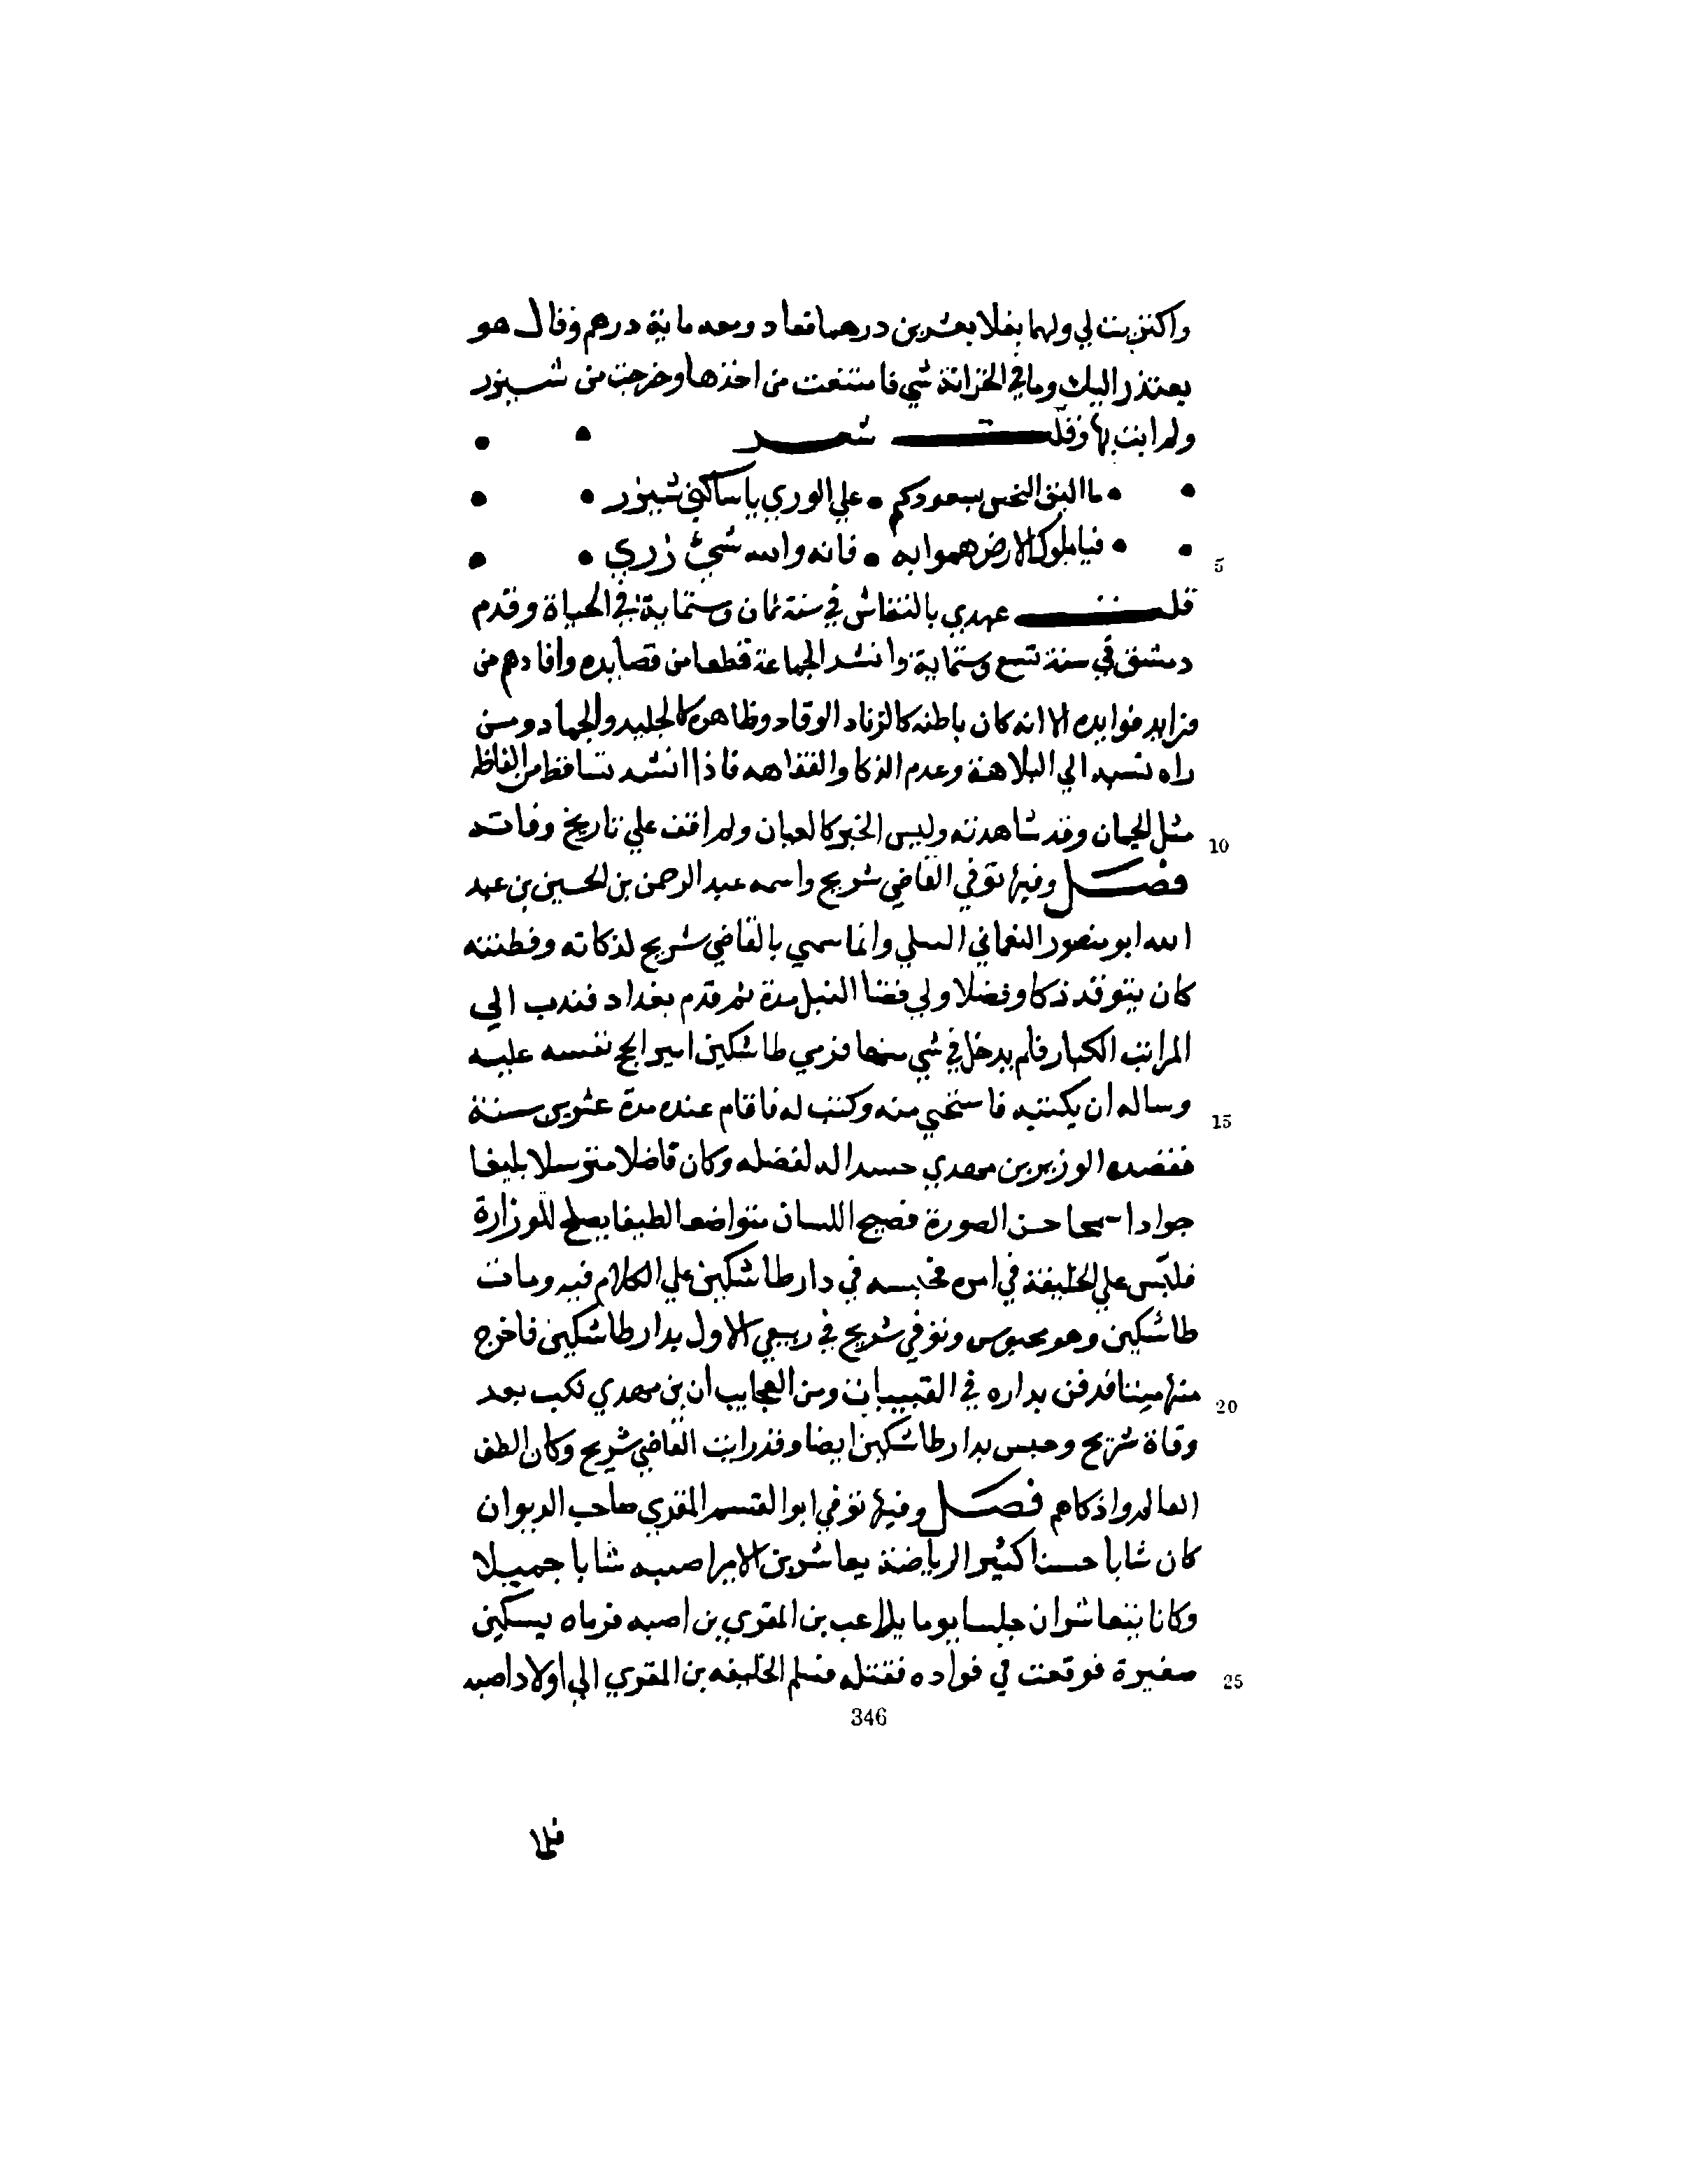 واكتري بيت لي ولهما بغلا بعشرين درهما فعاد ومعه ماية درهم وقال هو
يعتذر اليك وما في الخزانة شي فامتنعت من اخذها وخرجت من شيزر
ولم ابت بها وقلت شعر
ما اليق النحس بسعودكم علي الوري يا ساكني شيزر
5 فيا ملوك الارض هموا به فانه والله شئ زري
قلت عهدي بالنقاش في سنة ثمان وستماية في الحياة وقدم
دمشق في سنة تسع وستماية وانشد الجماعة قطعا من قصايده وافادهم من
فرايد فوايده الا انه كان باطنه كالزناد الوقاد وظاهره كالجليد والجماد ومن
راه نسبه الي البلاهة وعدم الذكا والفقاهه فاذا انشد تساقط من الفاظه
10 مثل الجمان وقد شاهدته وليس الخبر كالعيان ولم اقف علي تاريخ وفاته
فصل وفيها توفي القاضي شريح واسمه عبد الرحمن بن الحسين بن عبد
الله ابو منصور النعماني النيلي وانما سمي بالقاضي شريح لذكائه وفطنته
كان يتوقد ذكا وفضلا ولي قضا النيل مدة ثم قدم بغداد فندب الي
المراتب الكبار فلم يدخل في شي منها فرمي طاشكين امير الحج نفسه عليه
15 وساله ان يكتب فاستحي منه وكتب له فاقام عنده مدة عشرين سنة
فقصده الوزير بن مهدي حسدا له لفضله وكان فاضلا مترسلا بليغا
جوادا سمحا حسن الصورة فصيح اللسان متواضعا لطيفا يصلح للوزارة
فلبس علي الخليفة في امره فحبسه في دار طاشكين علي الكلام فيه ومات
طاشكين وهو محبوس وتوفي شريح في ربيع الاول بدار طاشكين فاخرج
20 منها ميتا فدفن بداره في القبيبات ومن العجايب ان بن مهدي نكب بعد
وفاة شريح وحبس بدار طاشكين ايضا وقد رايت القاضي شريح وكان الطف
العالم واذكاهم فصل وفيها توفي ابو القسم المقري صاحب الديوان
كان شابا حسنا كثير الرياضة يعاشر بن الامير اصبه شابا جميلا
وكانا يتعاشران جلسا يوما يلاعب بن المقري بن اصبه فرماه بسكين
25 صغيرة فوقعت في فواده فقتله فسلم الخليفه بن المقري الي اولاد اصبه
346
فلما